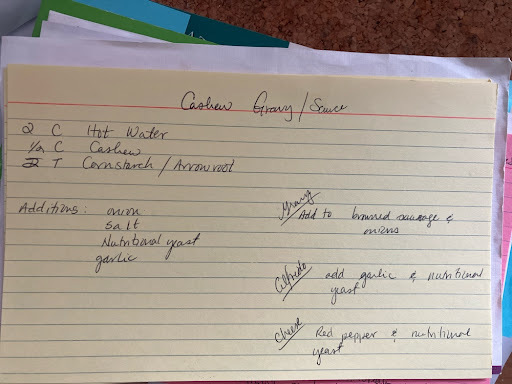 Cashew Gravy / Sauce
2 C Hot Water
1/2 C Cashew
2 T Cornstarch / Arrowroot
Additions: onion
salt
Nutritional yeast
garlic
Gravy
Add to browned sausage &
onions
Alfredo
add garlic & nutritional
yeast
Cheese
Red pepper & nutritional
yeast